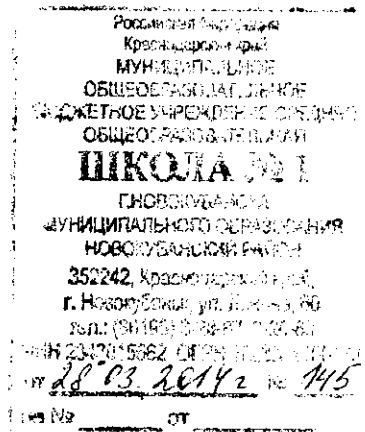 Российская Федерация
Краснодарский край
МУНИЦИПАЛЬНОЕ
ОБЩЕОБРАЗОВАТЕЛЬНОЕ
БЮДЖЕТНОЕ УЧРЕЖДЕНИЕ СРЕДНЯЯ
ОБЩЕОБРАЗОВАТЕЛЬНАЯ
ШКОЛА № 1
Г.НОВОКУБАНСКА
МУНИЦИПАЛЬНОГО ОБРАЗОВАНИЯ
НОВОКУБАНСКИЙ РАЙОН
352242, Краснодарский край,
г. Новокубанск, ул.
тел.:
ИНН
от 28 03. 2014 г № 145
На № от